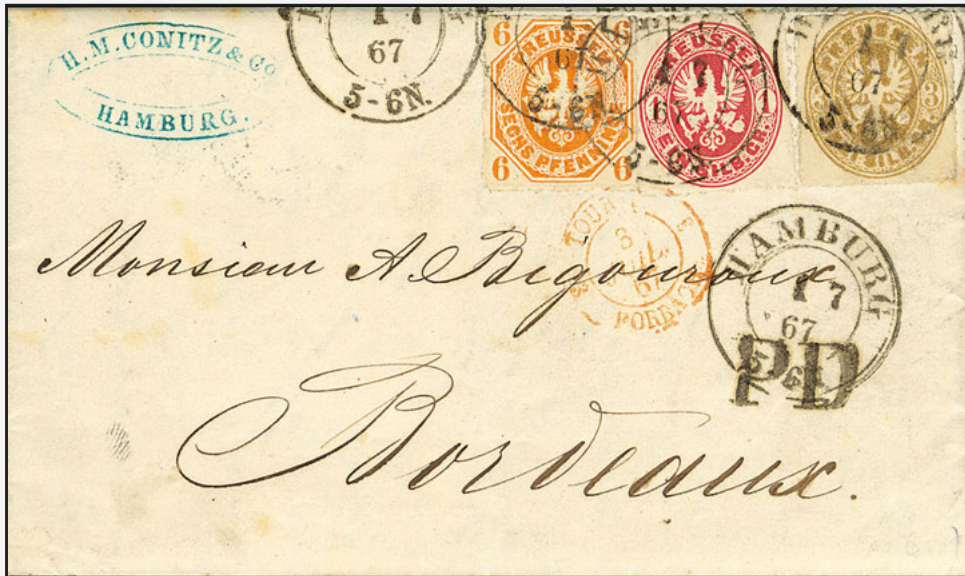 H. M. CONITZ & Co
HAMBURG.
1 7
67
5-6N.
6 6
PREUSSEN
SECHS PFENNING
6 6
67
5-6N
PREUSSEN
1
EIN SILB. GR.
7
67
5-6N
3
SILB.
67
TOUR
3
67
FORBACH
HAMBURG
1 7
67
5-6
PD
Monsieur A Bigouroux
Bordeaux.